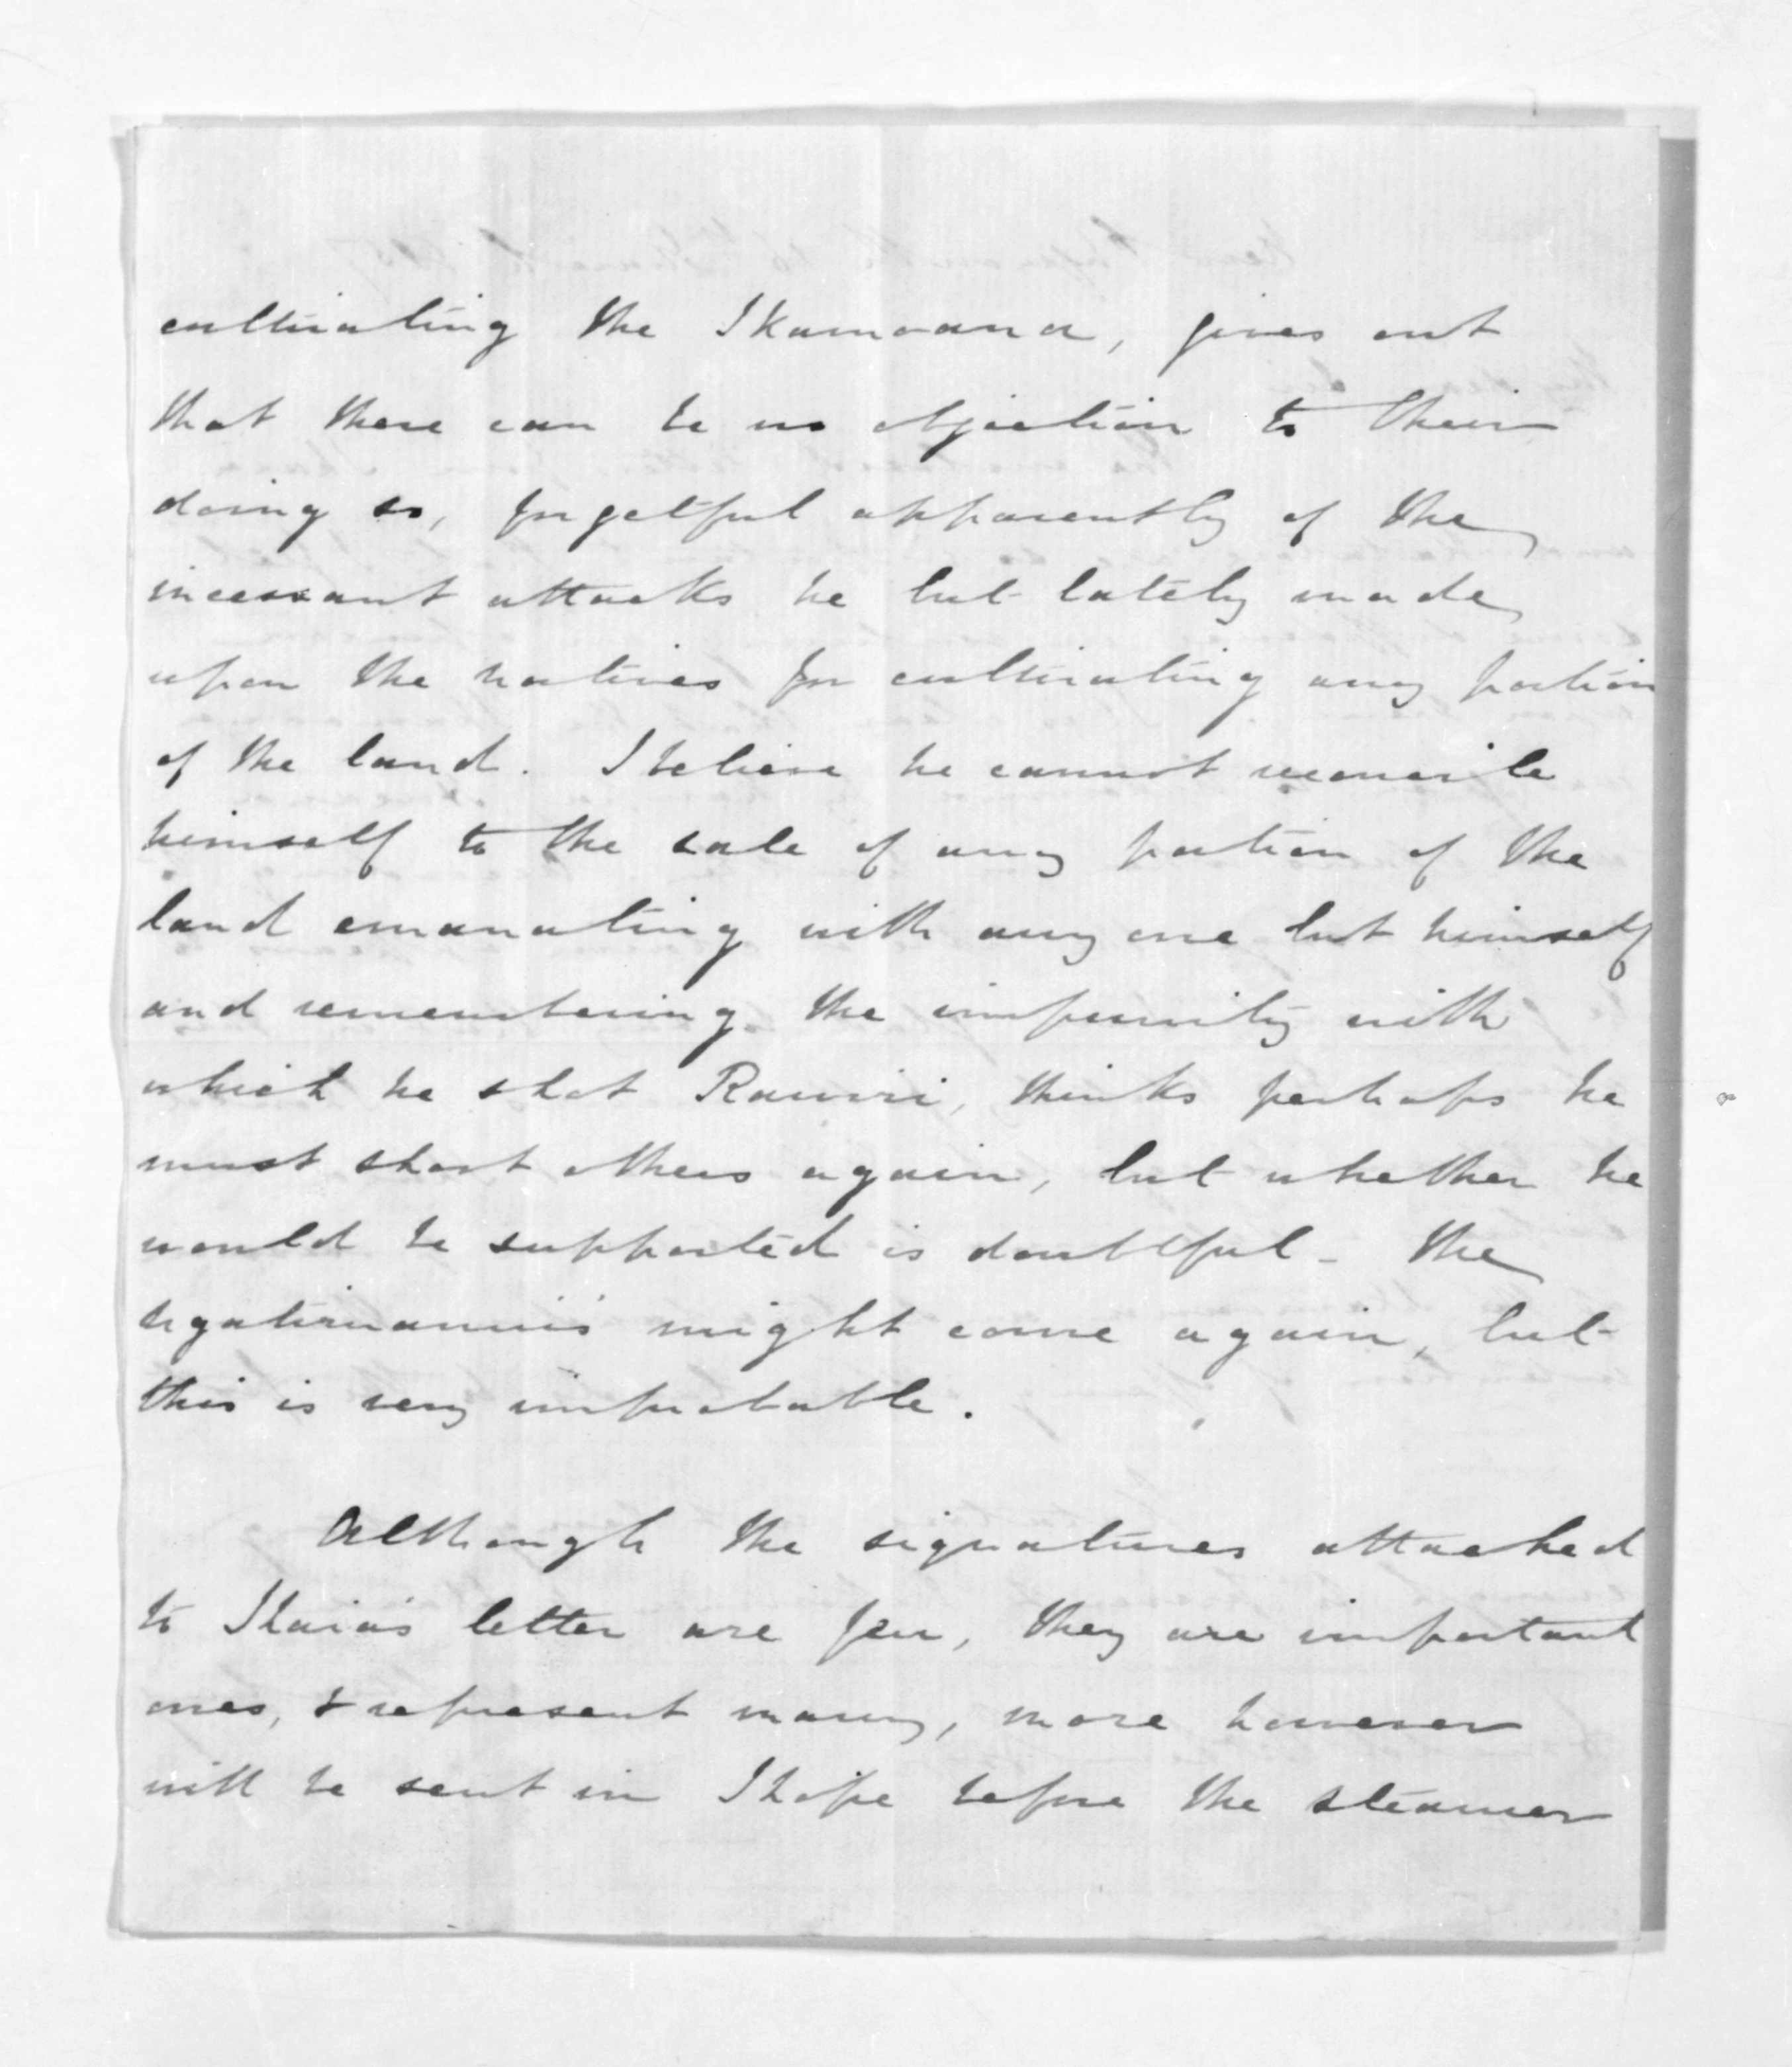 cultivating the Ikamoana, gives out
that there can be no objection to their
doing so, forgetful apparently of the
incessant attacks he but lately made
upon the natives for cultivating any portion
of the land. I believe he cannot reconcile
himself to the sale of any portion of the
land emanating with any one but himself
and remembering the impunity with
which he shot Rawiri, thinks perhaps he
must shoot others again, but whether he
would be supported is doubtful - The
ngatiruanuis might come again, but
this is very improbable.
Although the signatures attached
to Ihaia's letter are few, they are important
ones, & represent many, more however
will be sent in I hope before the steamer